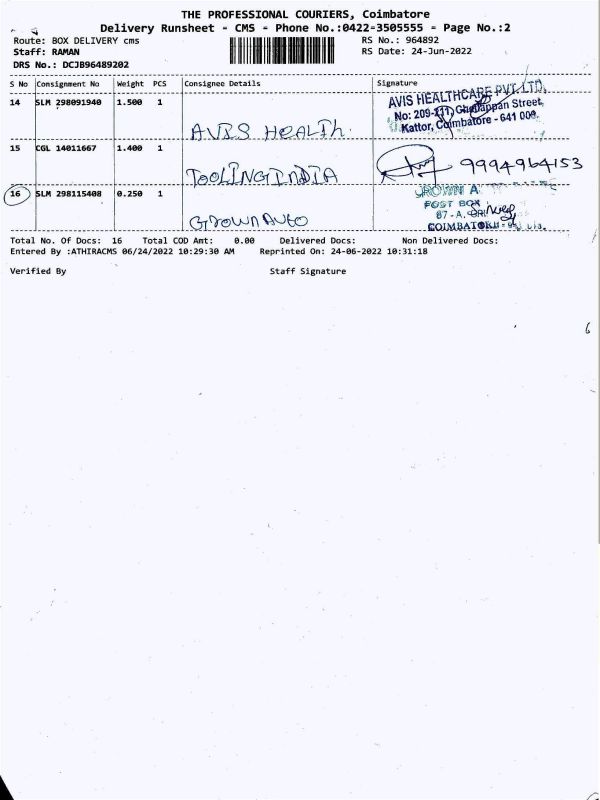 THE PROFESSIONAL COURIERS, Coimbatore
Delivery Runsheet - CMS - Phone No.:0422-3505555 - Page No.:2
Route: BOX DELIVERY cms RS No.: 964892
Staff: RAMAN RS Date: 24-Jun-2022
DRS No.: DCJB96489202
S No Consignment No Weight PCS Consignee Details Signature
14 SLM 298091940 1.500 1
AVIS HEALTHCARE PVT. LTD,
No: 209-211, Street,
Kattor, Coimbatore - 641 009.
AVIS HEALTH.
15 CGL 14011667 1.400 1
9994964153
TOOLINGINDIA
16 SLM 298115408 0.250 1
CROWN A
POST BOX
67 - A,
COIMBATORE
CROWN AUTO
Total No. Of Docs: 16 Total COD Amt: 0.00 Delivered Docs: Non Delivered Docs:
Entered By :ATHIRACMS 06/24/2022 10:29:30 AM Reprinted On: 24-06-2022 10:31:18
Verified By Staff Signature
6